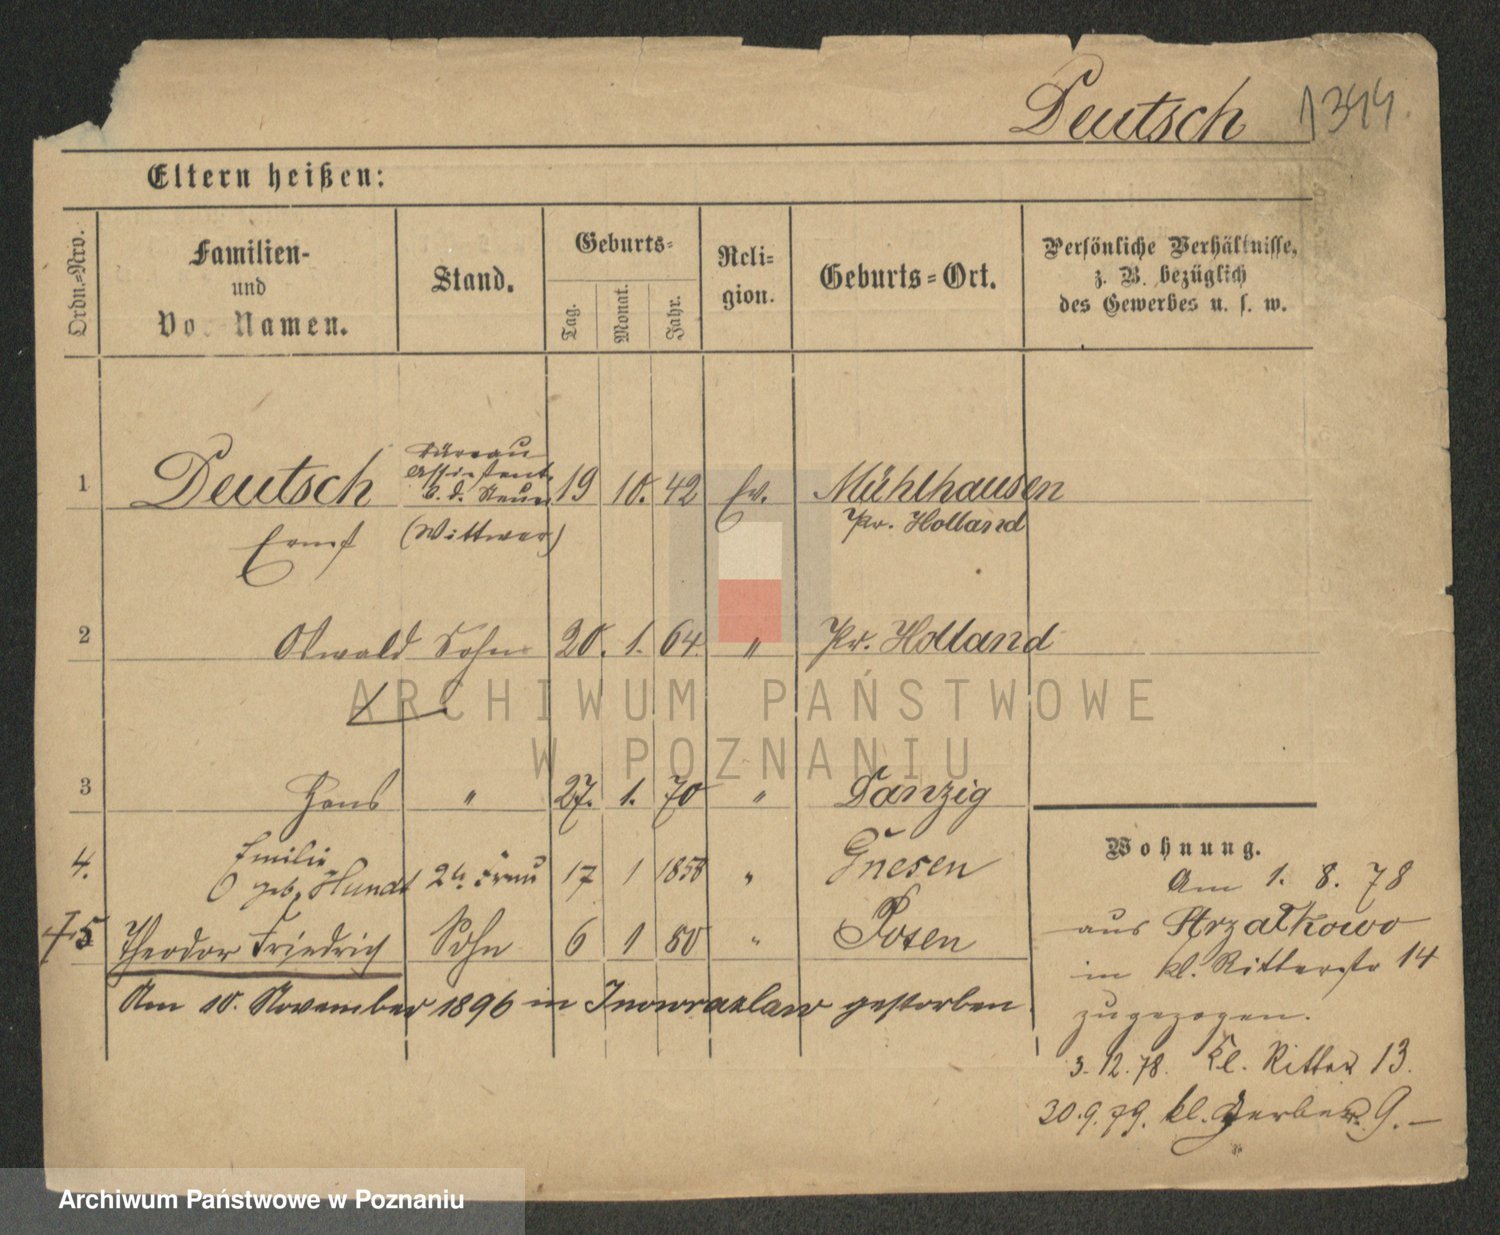 Deutsch 1344
Eltern heißen:
Ordn.=Nro.
Familien-
und
Vor-Namen.
Stand.
Geburts=
Tag.
Monat.
Jahr.
Reli=
gion.
Geburts=Ort.
Persönliche Verhältnisse,
z. B. bezüglich
des Gewerbes u. s. w.
Büreau
Assistent
1 Deutsch b. d. Steuer 19 10. 42 Ev. Mühlhausen
Ernst (Wittwer) Pr. Holland
2 Oswald Sohn 20. 1. 64. " Pr. Holland
3 Hans " 27. 1. 70 " Danzig
4. Emilie
geb. Hundt 2te Frau 17 1 1858 " Gnesen
5 Theodor Friedrich Sohn 6 1 80 " Posen
Am 10. November 1896 in Inowrazlaw gestorben
Wohnung.
Am 1. 8. 78
aus Strzalkowo
in kl. Ritterstr 14
zugezogen.
3. 12. 78. kl. Ritter 13.
30. 9. 79. kl. Gerber 9.
ARCHIWUM PAŃSTWOWE
W POZNANIU
Archiwum Państwowe w Poznaniu